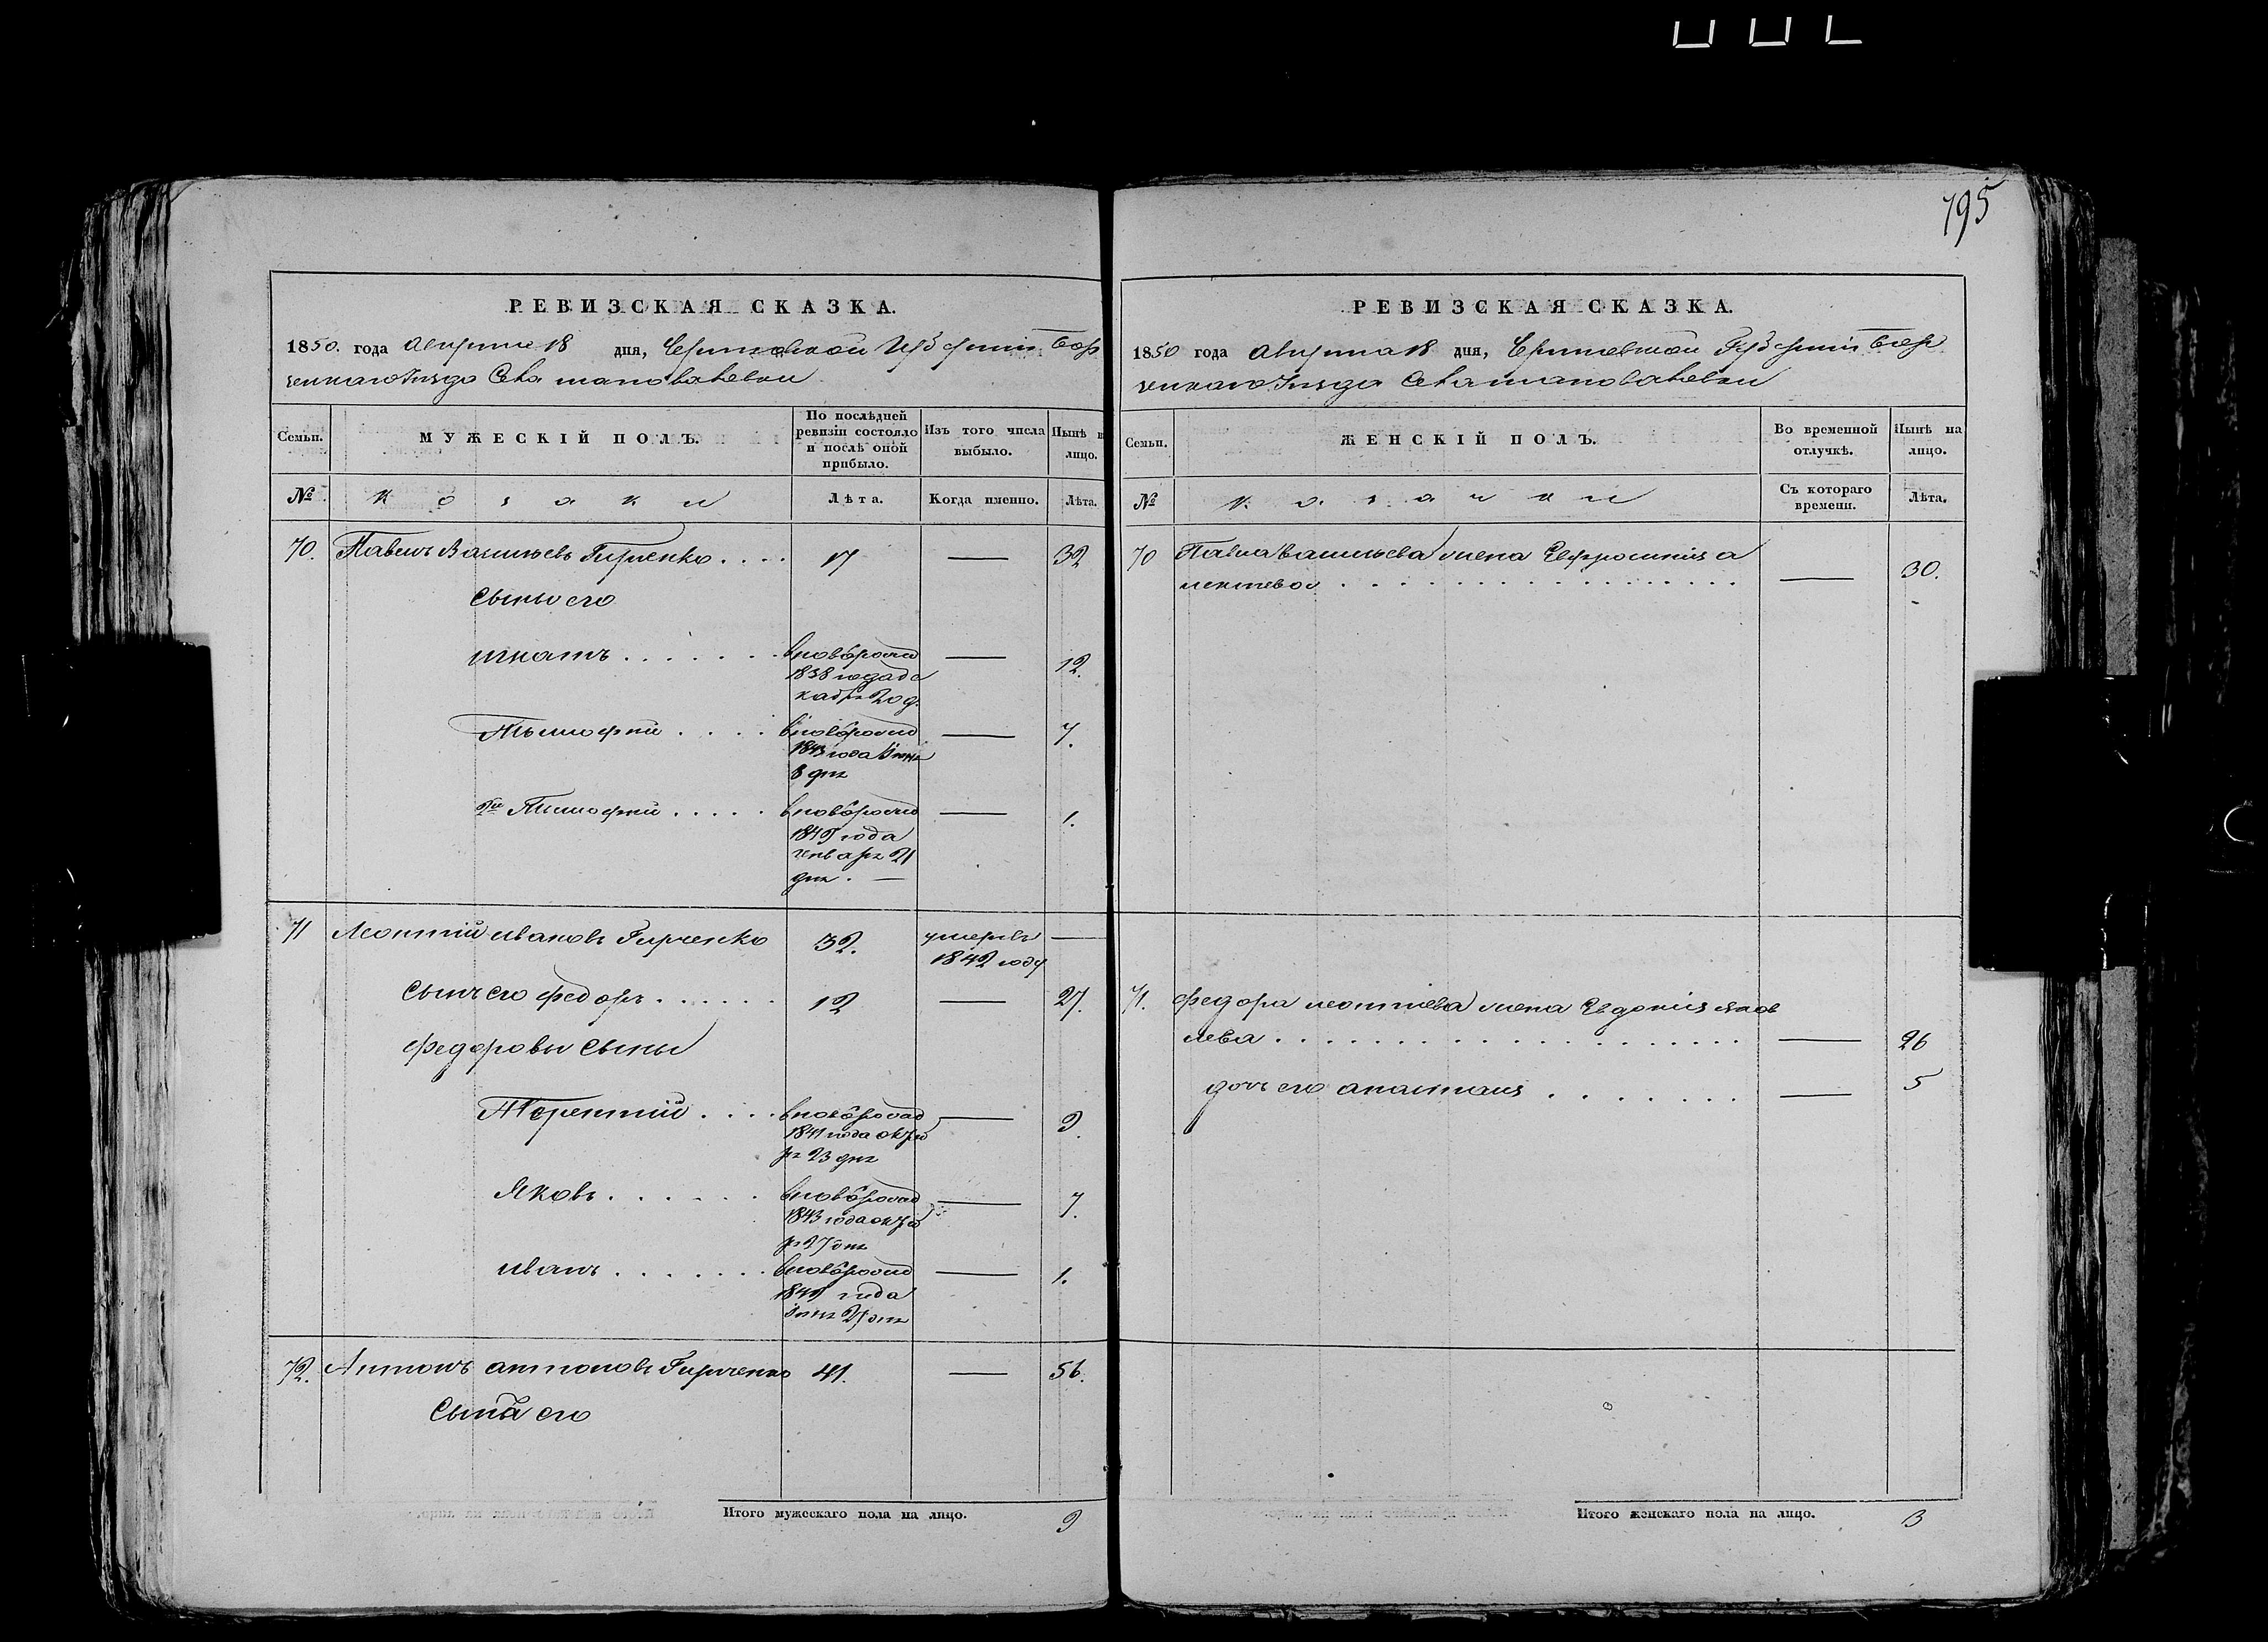 795
РЕВИЗСКАЯ СКАЗКА.
1850. года августа 18 дня, Черниговской Губерніи Бор
зенскаго Уезда Села
МУЖЕСКІЙ ПОЛЪ.
Семьи.
По послѣдней
ревизіи состояло
и послѣ оной
прибыло.
Изъ того числа
выбыло.
Нынѣ н
лицо.
№
козаки
Лѣта.
Когда именно.
Лѣта.
70. Павелъ Васильевъ Гирченко 17 — 32
Сыны его
Игнатъ вновьрожд — 12.
1838 года де
кабря 20 д.
Тимофей вновьрожд — 7.
1843 года Іюня
8 дня
2й Тимофей вновьрожд — 1.
1849 года
генваря 21
дня. —
71 Леонтій Ивановъ Гирченко 32. умеръ —
1842 году
Сынъ его Федоръ 12 — 27.
Федоровы Сыны
Терентій вновьрожд — 9.
1841 года октяб
ря 23 дня
Яковъ вновьрожд — 7.
1843 года октяб
ря 27 дня
Иванъ вновьрожд — 1.
1849 года
дня
72. Антонъ Антоновъ Гирченко 41. — 56.
Сына его
Итого мужескаго пола на лицо. 9
РЕВИЗСКАЯ СКАЗКА.
1850 года августа 18 дня, Черниговской Губерніи Бор
зенскаго Уезда Села
Семьи.
ЖЕНСКІЙ ПОЛЪ.
Во временной
отлучкѣ.
Нынѣ на
лицо.
№
козачки
Съ котораго
времени.
Лѣта.
70 Павла Васильева жена Евфросинія А
лексѣева — 30.
71. Федора Леонтіева жена Евдокія Яков
лева — 26
дочь его Анастасія — 5
Итого женскаго пола на лицо. 3